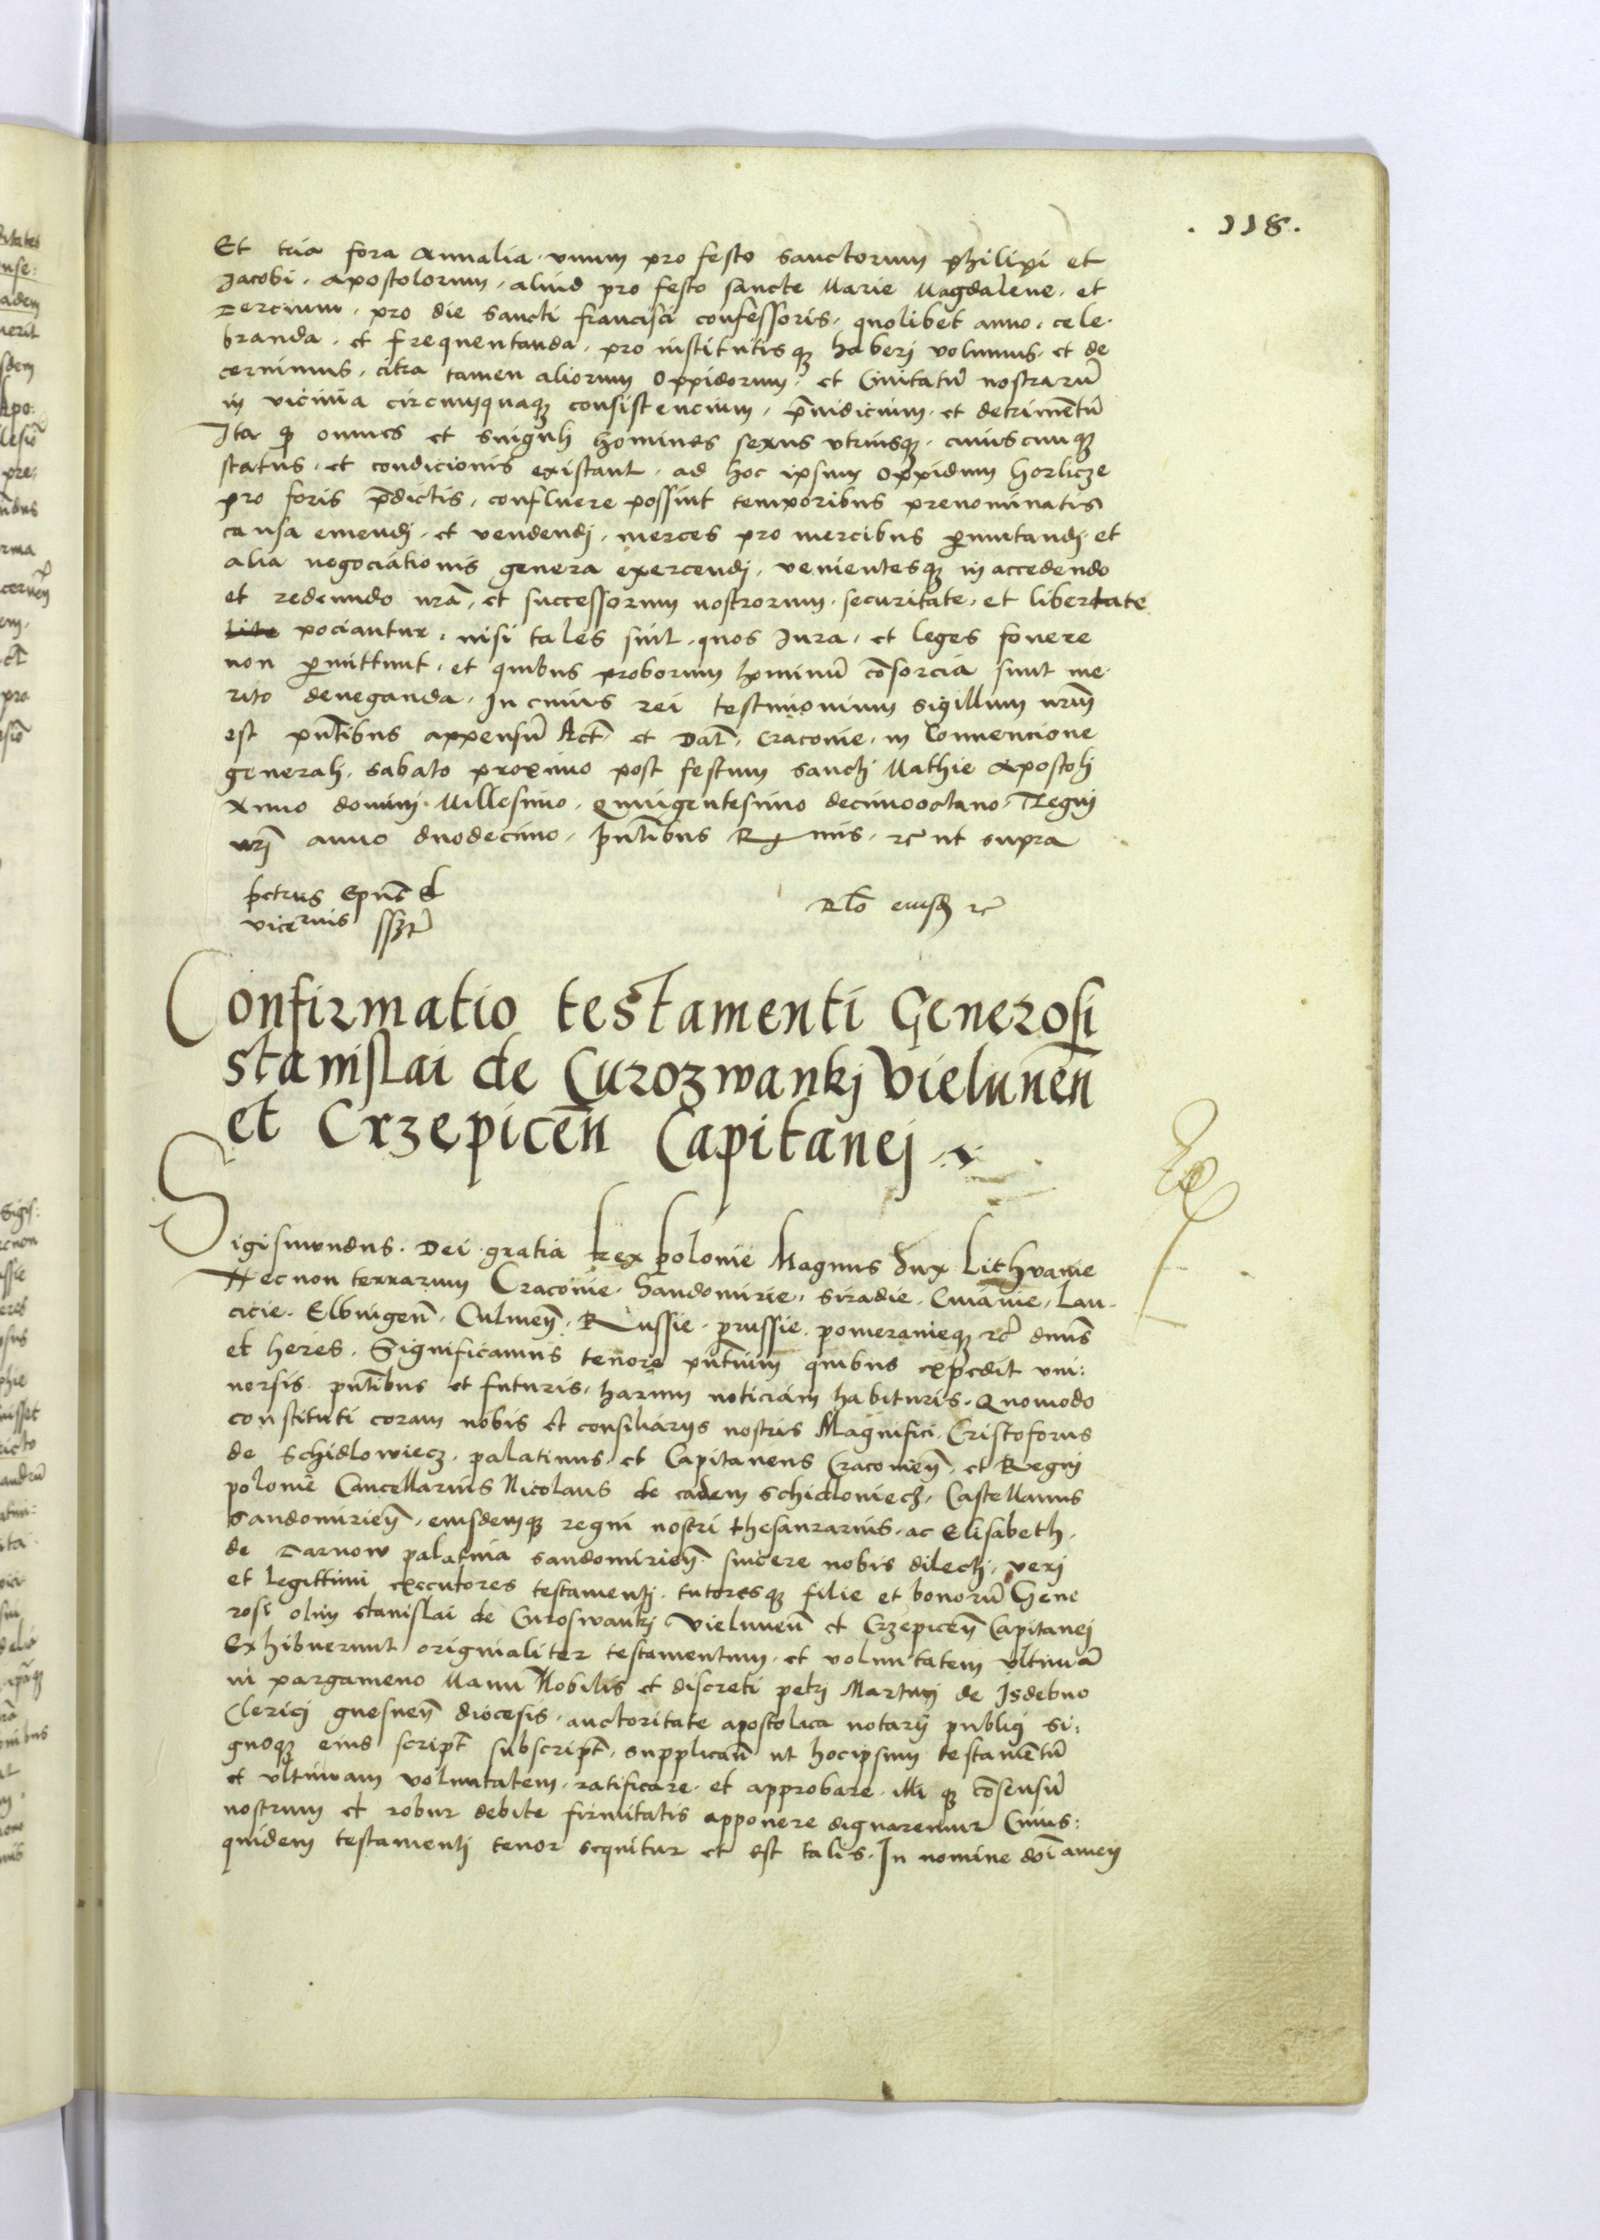 .118.
Et tria fora Annalia. vnum pro festo Sanctorum philipi et
Jacobi. Apostolorum. aliud pro festo sancte Marie Magdalene. et
Tercium. pro die Sancti francisci confessoris. quolibet anno. cele-
branda. et frequentanda. pro institutisqз haberi volumus. et de
cernimus. citra tamen aliorum oppidorum. et Ciuitatū nostrarū
in vicinia circumquaqз consistencium. p̄iudicium. et detrimentū
Ita q̨ omnes et singuli homines sexus vtriusqз. cuiuscunqз
status. et condicionis existant. ad hoc ipsum oppidum horlicze
pro foris p̄dictis. confluere possint temporibus prenominatis
causa emendi. et vendendi. merces pro mercibus ꝑmutandi. et
alia negociationis genera exercendi. venientesqз in accedendo
et redeundo nrā. et successorum nostrorum. securitate. et libertate
pociantur. nisi tales sint. quos Jura. et leges fouere
non ꝑmittunt. et quibus proborum hominū cōsorcia sunt me-
rito deneganda. In cuius rei testimonium sigillum nrm̄
est pn̄tibus appensū Act̄ et Dat̄. Cracouie. in Conuencione
generali. Sabato proximo post festum sancti Mathie Apostoli
Anno domini. Millesimo. Quingentesimo decimooctauo. Regni
nrj̄ anno duodecimo. pn̄tibus R mis. rc ut supra
petrus Ep̄us et
vicecr̄ius sszt
Rl̄o eiusd̄ rc
Confirmatio testamenti Generosi
stanislai de Curozwankj Vielunen̄
et Crzepicen̄ Capitanej
Sigismundus. Dei gratia Rex polonie Magnus Dux Lithvanie
Necnon terrarum Cracouie. Sandomirie. Siradie. Cuiauie. Lan-
cicie. Elbingen̄. Culmen̄. Russie. prussie. pomeranieqз rc̄ dnūs
et heres. Significamus tenore pn̄tium quibus expedit vni:
uersis pn̄tibus et futuris. harum noticiam habituris. Quomodo
constituti coram nobis et consiliarijs nostris Magnifici. Cristoforus
de Schidlowiecz. palatinus. et Capitaneus Cracouien̄. et Regni
polonie Cancellarius Nicolaus de eadem Schidloniecz. Castellanus
Sandomirien̄. eiusdemqз regni nostri thesaurarius. ac Elisabeth.
de Tarnow palatina Sandomirien̄. sincere nobis dilecti. veri
et legittimi executores testamenti. tutoresqз filie et bonorū Gene
rosi olim Stanislai de Curoswankj Vielunen̄ et Crzepicen̄ Capitanej
Exhibuerunt originaliter testamentum. et voluntatem vltimā
in pargameno Manu Nobilis et discreti petri Martini de Jsdebno
Clerici gnesnen̄ diocesis. auctoritate apostolica notarij publici si:
gnoqз eius script̄ subscript̄. supplican̄ ut hocipsum testamentū
et vltimam voluntatem. ratificare. et approbare. illi qз cōsensū
nostrum et robur debite firmitatis apponere dignaremur Cuius:
quidem testamenti tenor sequitur et est talis. In nomine dōi amen